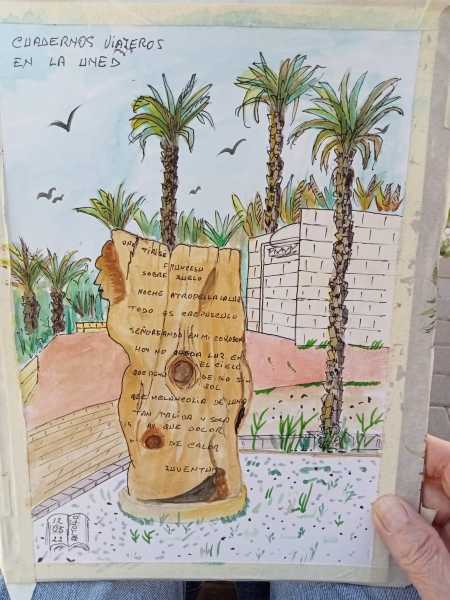 CUADERNOS VIAJEROS
EN LA UNED
SOBRE SUELO
NOCHE ATROPELLA LA LUZ
TODO ES CREPUSCULO
SEÑOREANDO EN MI CORAZON
HOY NO QUEDA LUZ EN
EL CIELO
DE
SOL
QUE MELANCOLIA DE LUNA
TAN PALIDA Y SOLA
AY QUE DOLOR
DE CALOR
JUVENTUD
12
05
22